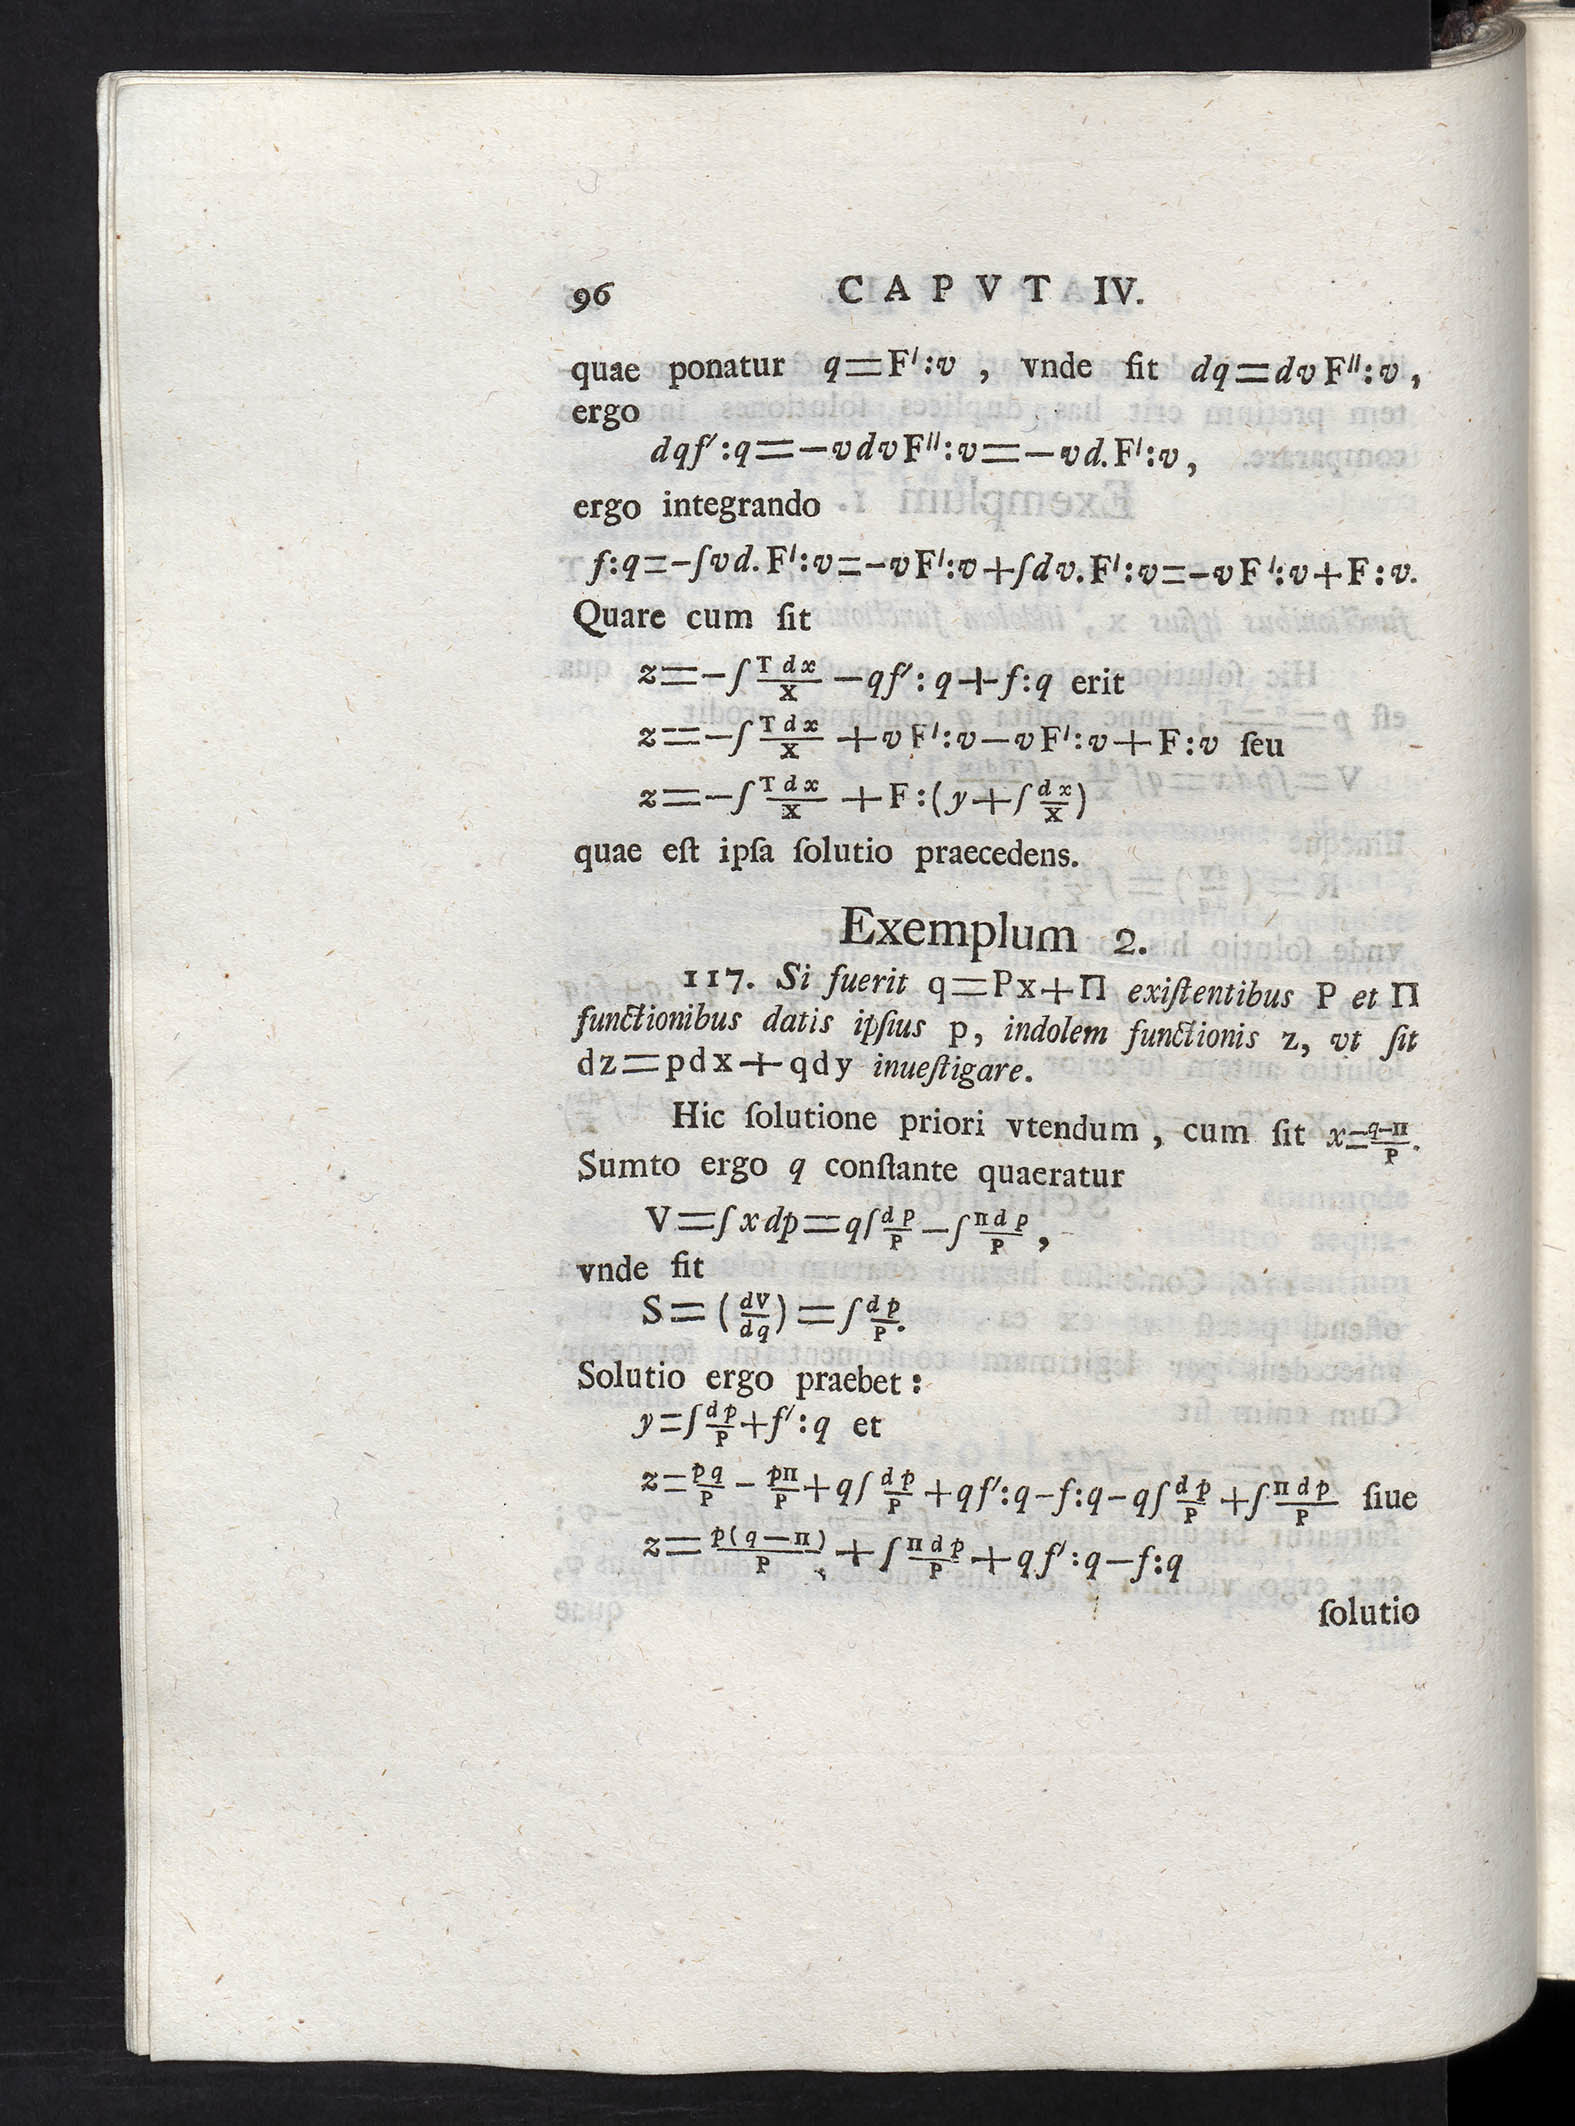 96 CAPVT IV.
quae ponatur q=F′:v , vnde fit dq=dvF″:v,
ergo
dqf′:q=−vdvF″:v=−vd.F′:v,
ergo integrando
f:q=−∫vd.F′:v=−vF′:v+∫dv.F′:v=−vF′:v+F:v.
Quare cum ſit
z=−∫\frac{T dx}{X}−qf′:q+f:q erit
z=−∫\frac{T dx}{X}+vF′:v−vF′:v+F:v ſeu
z=−∫\frac{T dx}{X}+F:(y+∫\frac{dx}{X})
quae eſt ipſa ſolutio praecedens.
Exemplum 2.
117. Si fuerit q=Px+Π exiſtentibus P et Π
functionibus datis ipſius p, indolem functionis z, vt ſit
dz=pdx+qdy inueſtigare.
Hic ſolutione priori vtendum, cum ſit x=\frac{q−Π}{P}.
Sumto ergo q conſtante quaeratur
V=∫xdp=q∫\frac{dp}{P}−∫\frac{Πdp}{P},
vnde fit
S=(\frac{dV}{dq})=∫\frac{dp}{P}.
Solutio ergo praebet:
y=∫\frac{dp}{P}+f′:q et
z=\frac{pq}{P}−\frac{pΠ}{P}+q∫\frac{dp}{P}+qf′:q−f:q−q∫\frac{dp}{P}+∫\frac{Πdp}{P} ſiue
z=\frac{p(q−Π)}{P}+∫\frac{Πdp}{P}+qf′:q−f:q
ſolutio